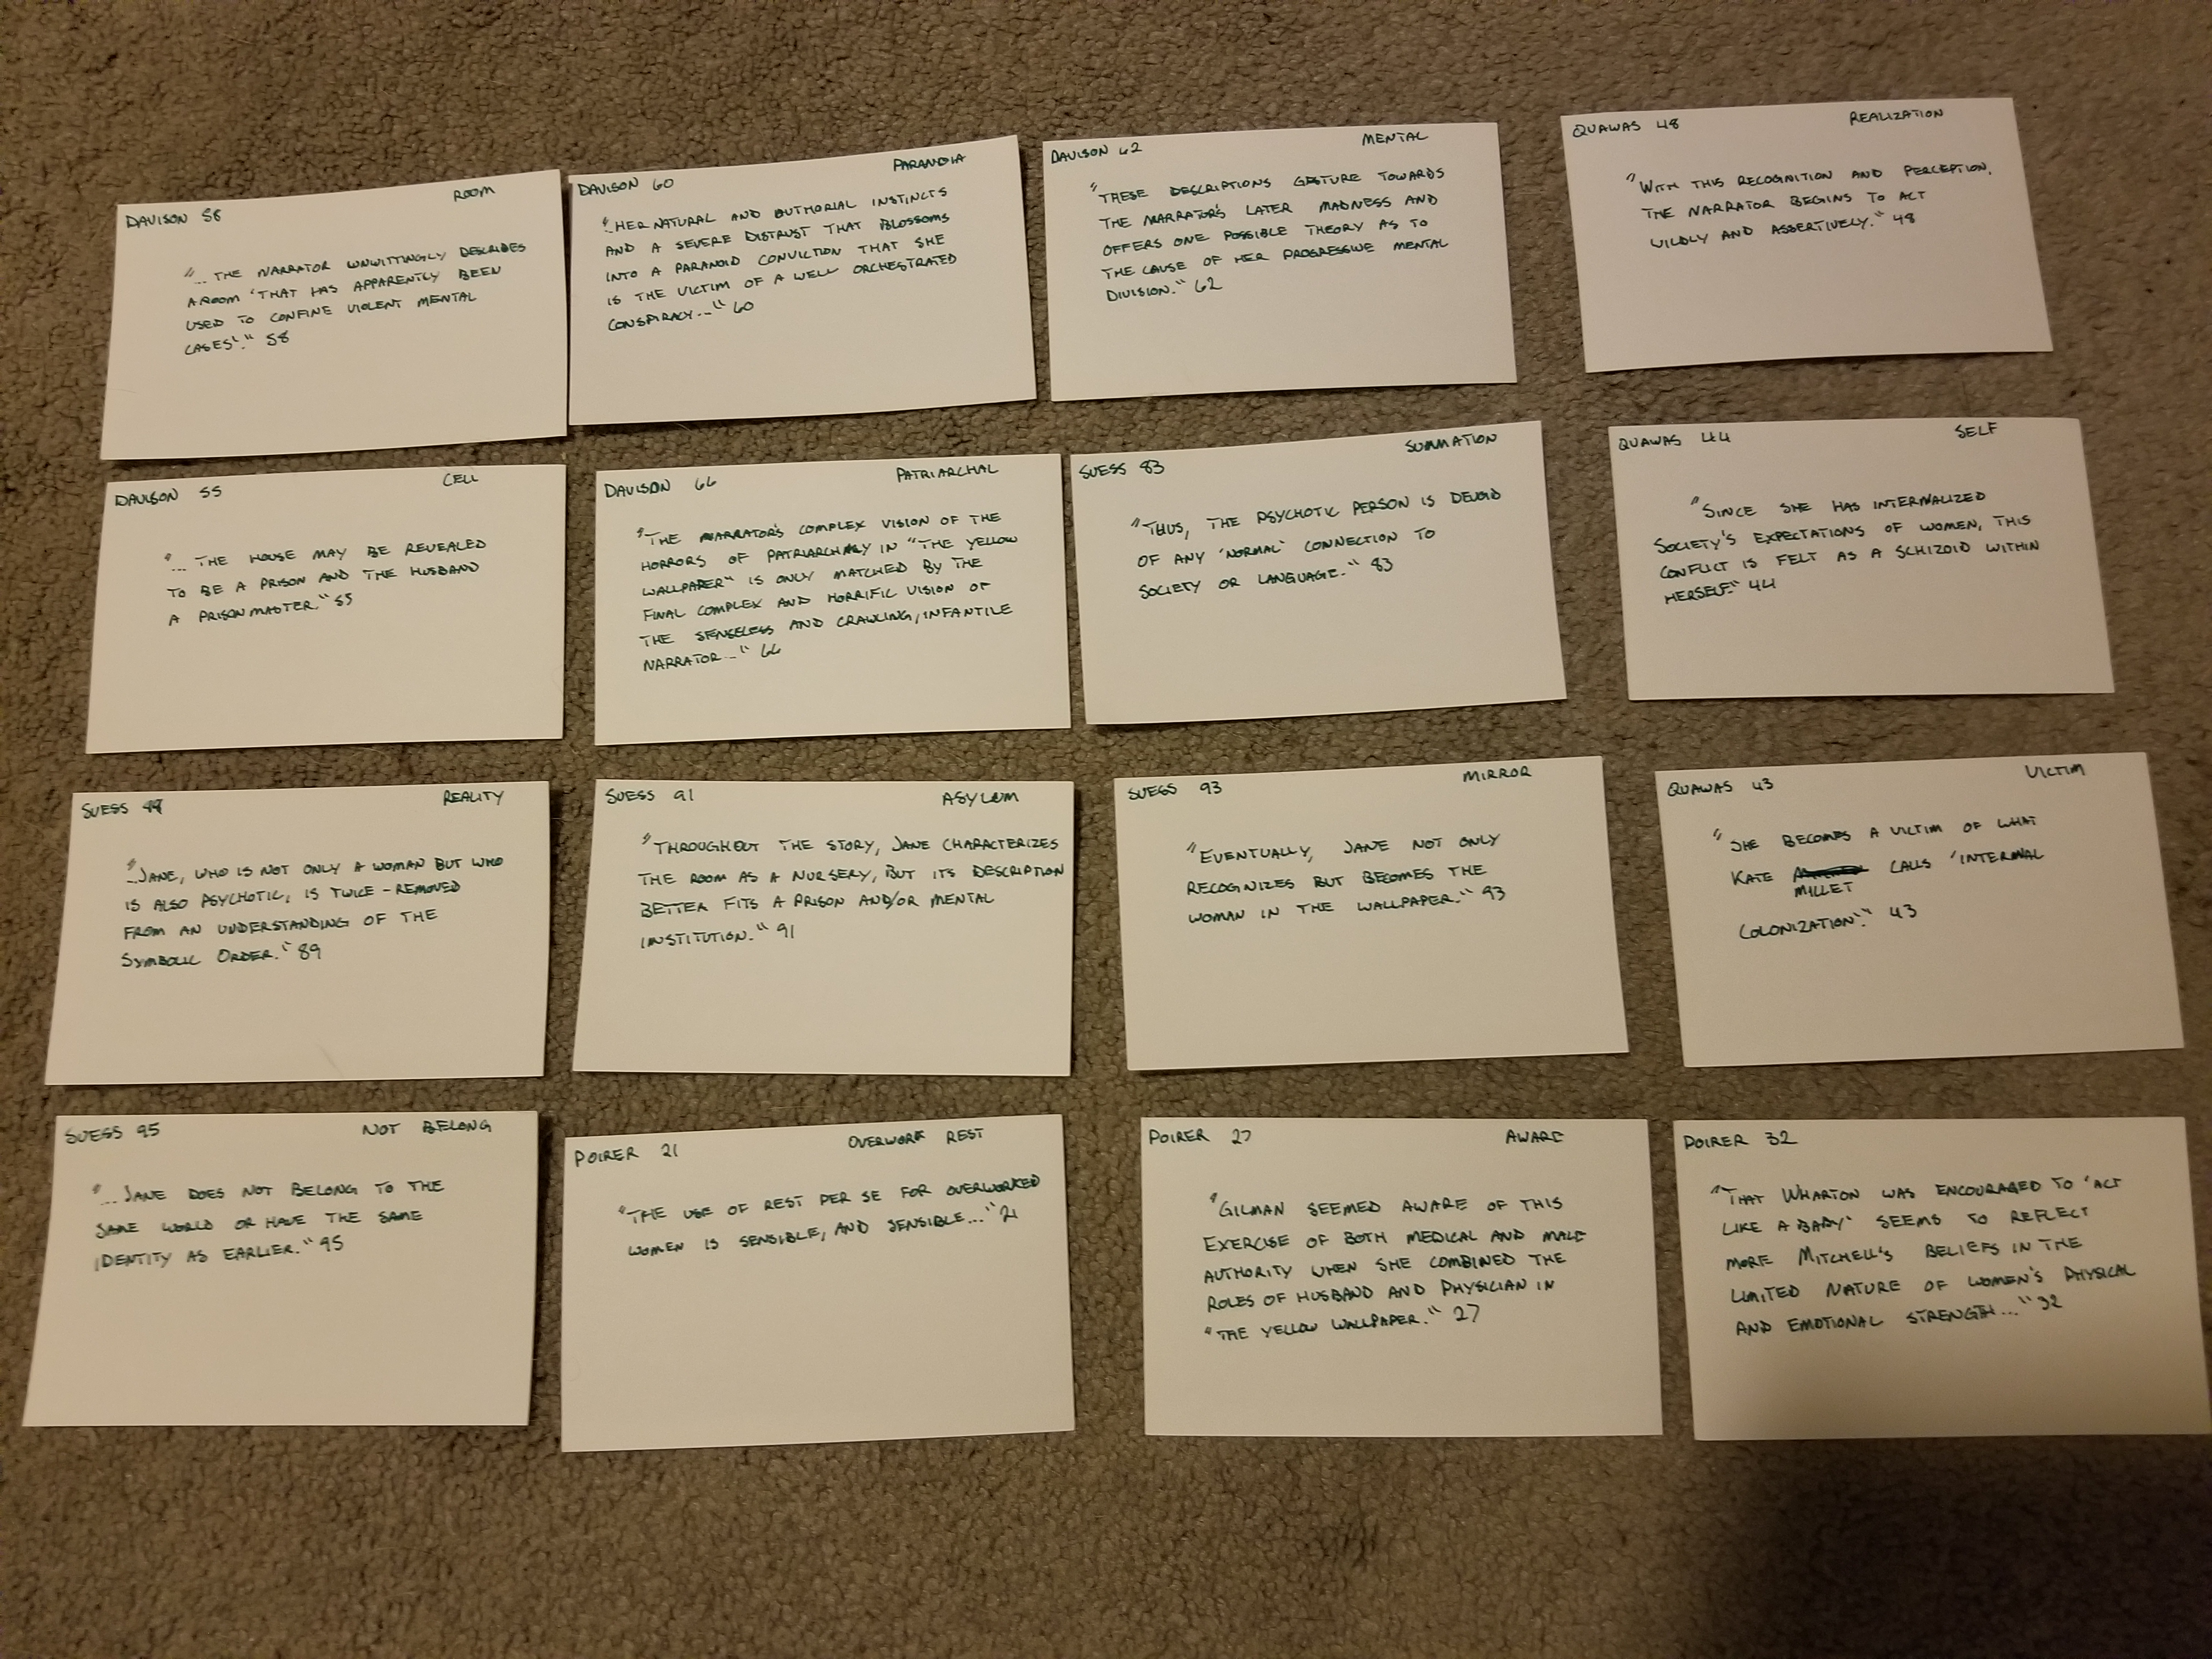 DAVISON 58 ROOM
"... THE NARRATOR UNWITTINGLY DESCRIBES
A ROOM 'THAT HAS APPARENTLY BEEN
USED TO CONFINE VIOLENT MENTAL
CASES'." 58
DAVISON 60 PARANOIA
"..HER NATURAL AND AUTHORIAL INSTINCTS
AND A SEVERE DISTRUST THAT BLOSSOMS
INTO A PARANOID CONVICTION THAT SHE
IS THE VICTIM OF A WELL ORCHESTRATED
CONSPIRACY..." 60
DAVISON 62 MENTAL
"THESE DESCRIPTIONS GESTURE TOWARDS
THE NARRATOR'S LATER MADNESS AND
OFFERS ONE POSSIBLE THEORY AS TO
THE CAUSE OF HER PROGRESSIVE MENTAL
DIVISION." 62
QUAWAS 48 REALIZATION
"WITH THIS RECOGNITION AND PERCEPTION,
THE NARRATOR BEGINS TO ACT
WILDLY AND ASSERTIVELY." 48
DAVISON 55 CELL
"... THE HOUSE MAY BE REVEALED
TO BE A PRISON AND THE HUSBAND
A PRISON MASTER." 55
DAVISON 66 PATRIARCHAL
"THE NARRATOR'S COMPLEX VISION OF THE
HORRORS OF PATRIARCHALY IN "THE YELLOW
WALLPAPER" IS ONLY MATCHED BY THE
FINAL COMPLEX AND HORRIFIC VISION OF
THE SENSELESS AND CRAWLING, INFANTILE
NARRATOR..." 66
SUESS 83 SUMMATION
"THUS, THE PSYCHOTIC PERSON IS DEVOID
OF ANY 'NORMAL' CONNECTION TO
SOCIETY OR LANGUAGE." 83
QUAWAS 44 SELF
"SINCE SHE HAS INTERNALIZED
SOCIETY'S EXPECTATIONS OF WOMEN, THIS
CONFLICT IS FELT AS A SCHIZOID WITHIN
HERSELF." 44
SUESS REALITY
"..JANE, WHO IS NOT ONLY A WOMAN BUT WHO
IS ALSO PSYCHOTIC, IS TWICE-REMOVED
FROM AN UNDERSTANDING OF THE
SYMBOLIC ORDER." 89
SUESS 91 ASYLUM
"THROUGHOUT THE STORY, JANE CHARACTERIZES
THE ROOM AS A NURSERY, BUT ITS DESCRIPTION
BETTER FITS A PRISON AND/OR MENTAL
INSTITUTION." 91
SUESS 93 MIRROR
"EVENTUALLY, JANE NOT ONLY
RECOGNIZES BUT BECOMES THE
WOMAN IN THE WALLPAPER." 93
QUAWAS 43 VICTIM
"SHE BECOMES A VICTIM OF WHAT
KATE CALLS 'INTERNAL
MILLET
COLONIZATION'." 43
SUESS 95 NOT BELONG
"...JANE DOES NOT BELONG TO THE
SAME WORLD OR HAVE THE SAME
IDENTITY AS EARLIER." 95
POIRER 21 OVERWORK REST
"THE USE OF REST PER SE FOR OVERWORKED
WOMEN IS SENSIBLE, AND SENSIBLE..." 21
POIRER 27 AWARE
"GILMAN SEEMED AWARE OF THIS
EXERCISE OF BOTH MEDICAL AND MALE
AUTHORITY WHEN SHE COMBINED THE
ROLES OF HUSBAND AND PHYSICIAN IN
"THE YELLOW WALLPAPER." 27
POIRER 32
"THAT WHARTON WAS ENCOURAGED TO 'ACT
LIKE A BABY' SEEMS TO REFLECT
MORE MITCHELL'S BELIEFS IN THE
LIMITED NATURE OF WOMEN'S PHYSICAL
AND EMOTIONAL STRENGTH..." 32